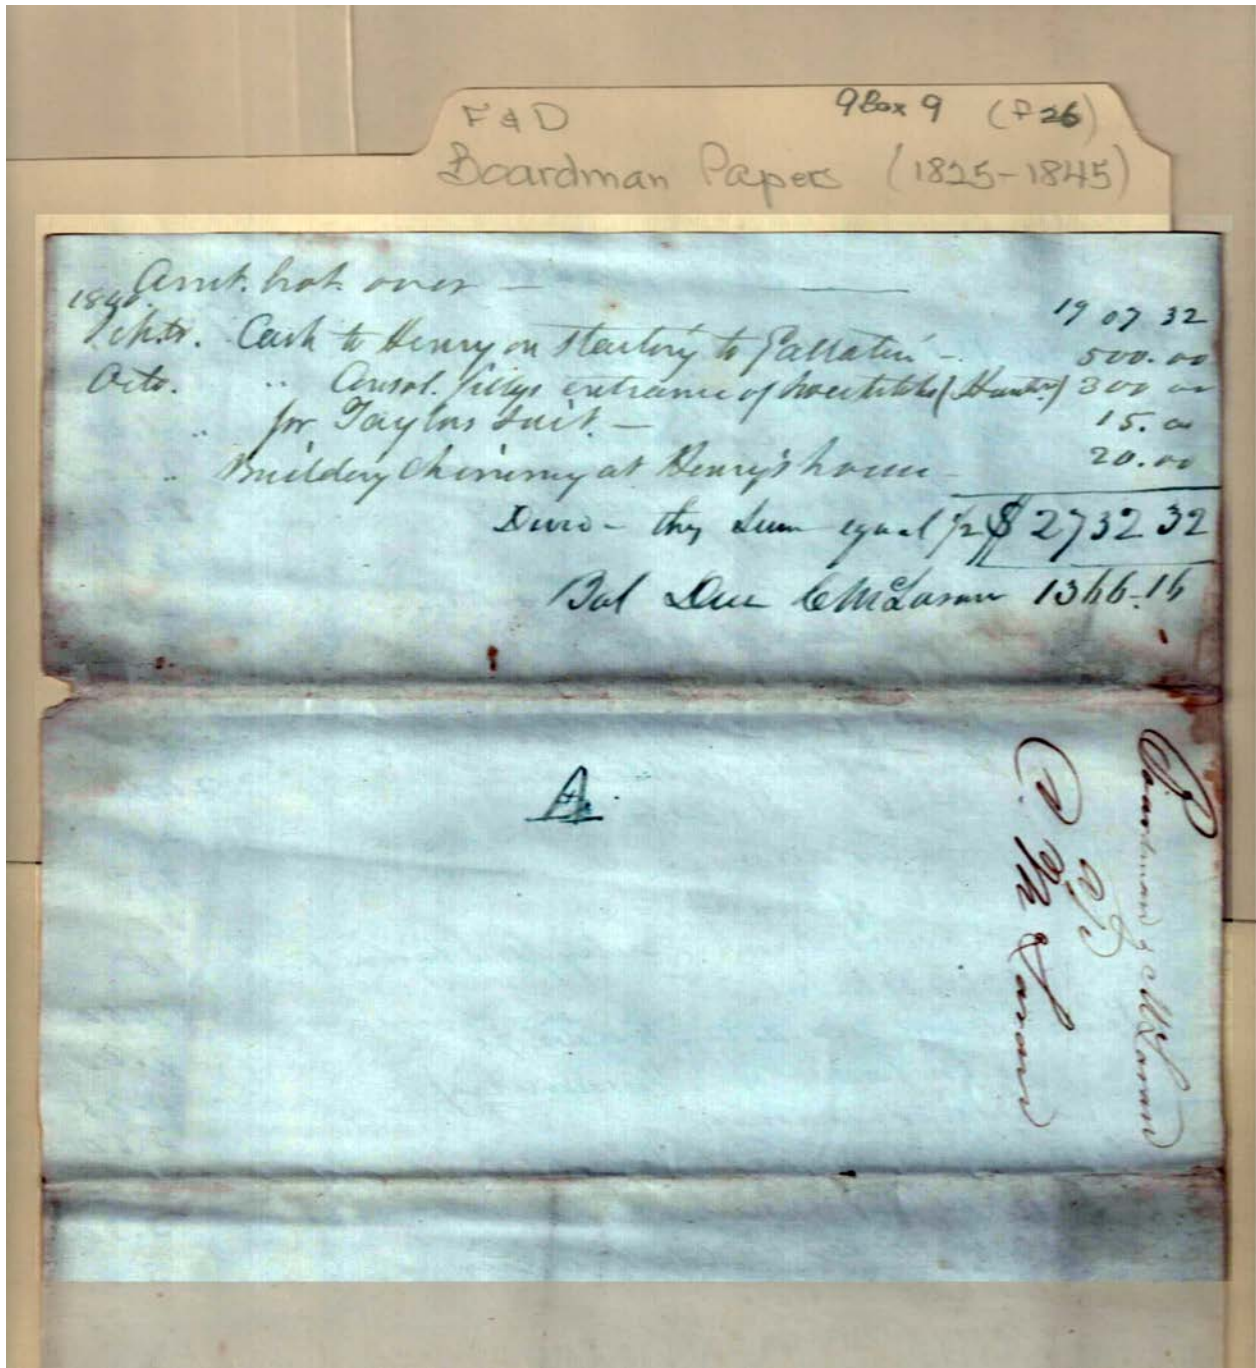 F & D 9Box 9 (F26)
Boardman Papers (1825-1845)
Amt. brot. over — 19 07 32
1840.
Cash to Henry on starting to Gallatin — 500.00
Octo. " Consol. fillys entrance of (Hunter) 300 00
" for Taylors suit. — 15.00
" Building Chimney at Henry's house — 20.00
this sum equal 1/2 $ 2732 32
Bal Due C McLaran 1366.16
A.
Boardman & McLaran
a/c
C. McLaran